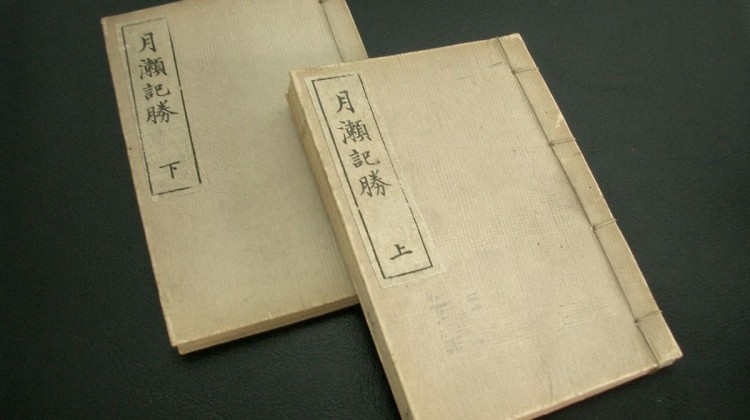 月瀬記勝
下
月瀬記勝
上